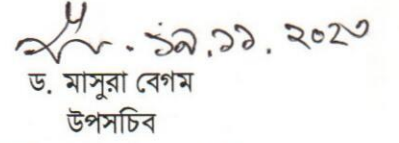 ১৯.১১.২০২৩
ড. মাসুরা বেগম
উপসচিব